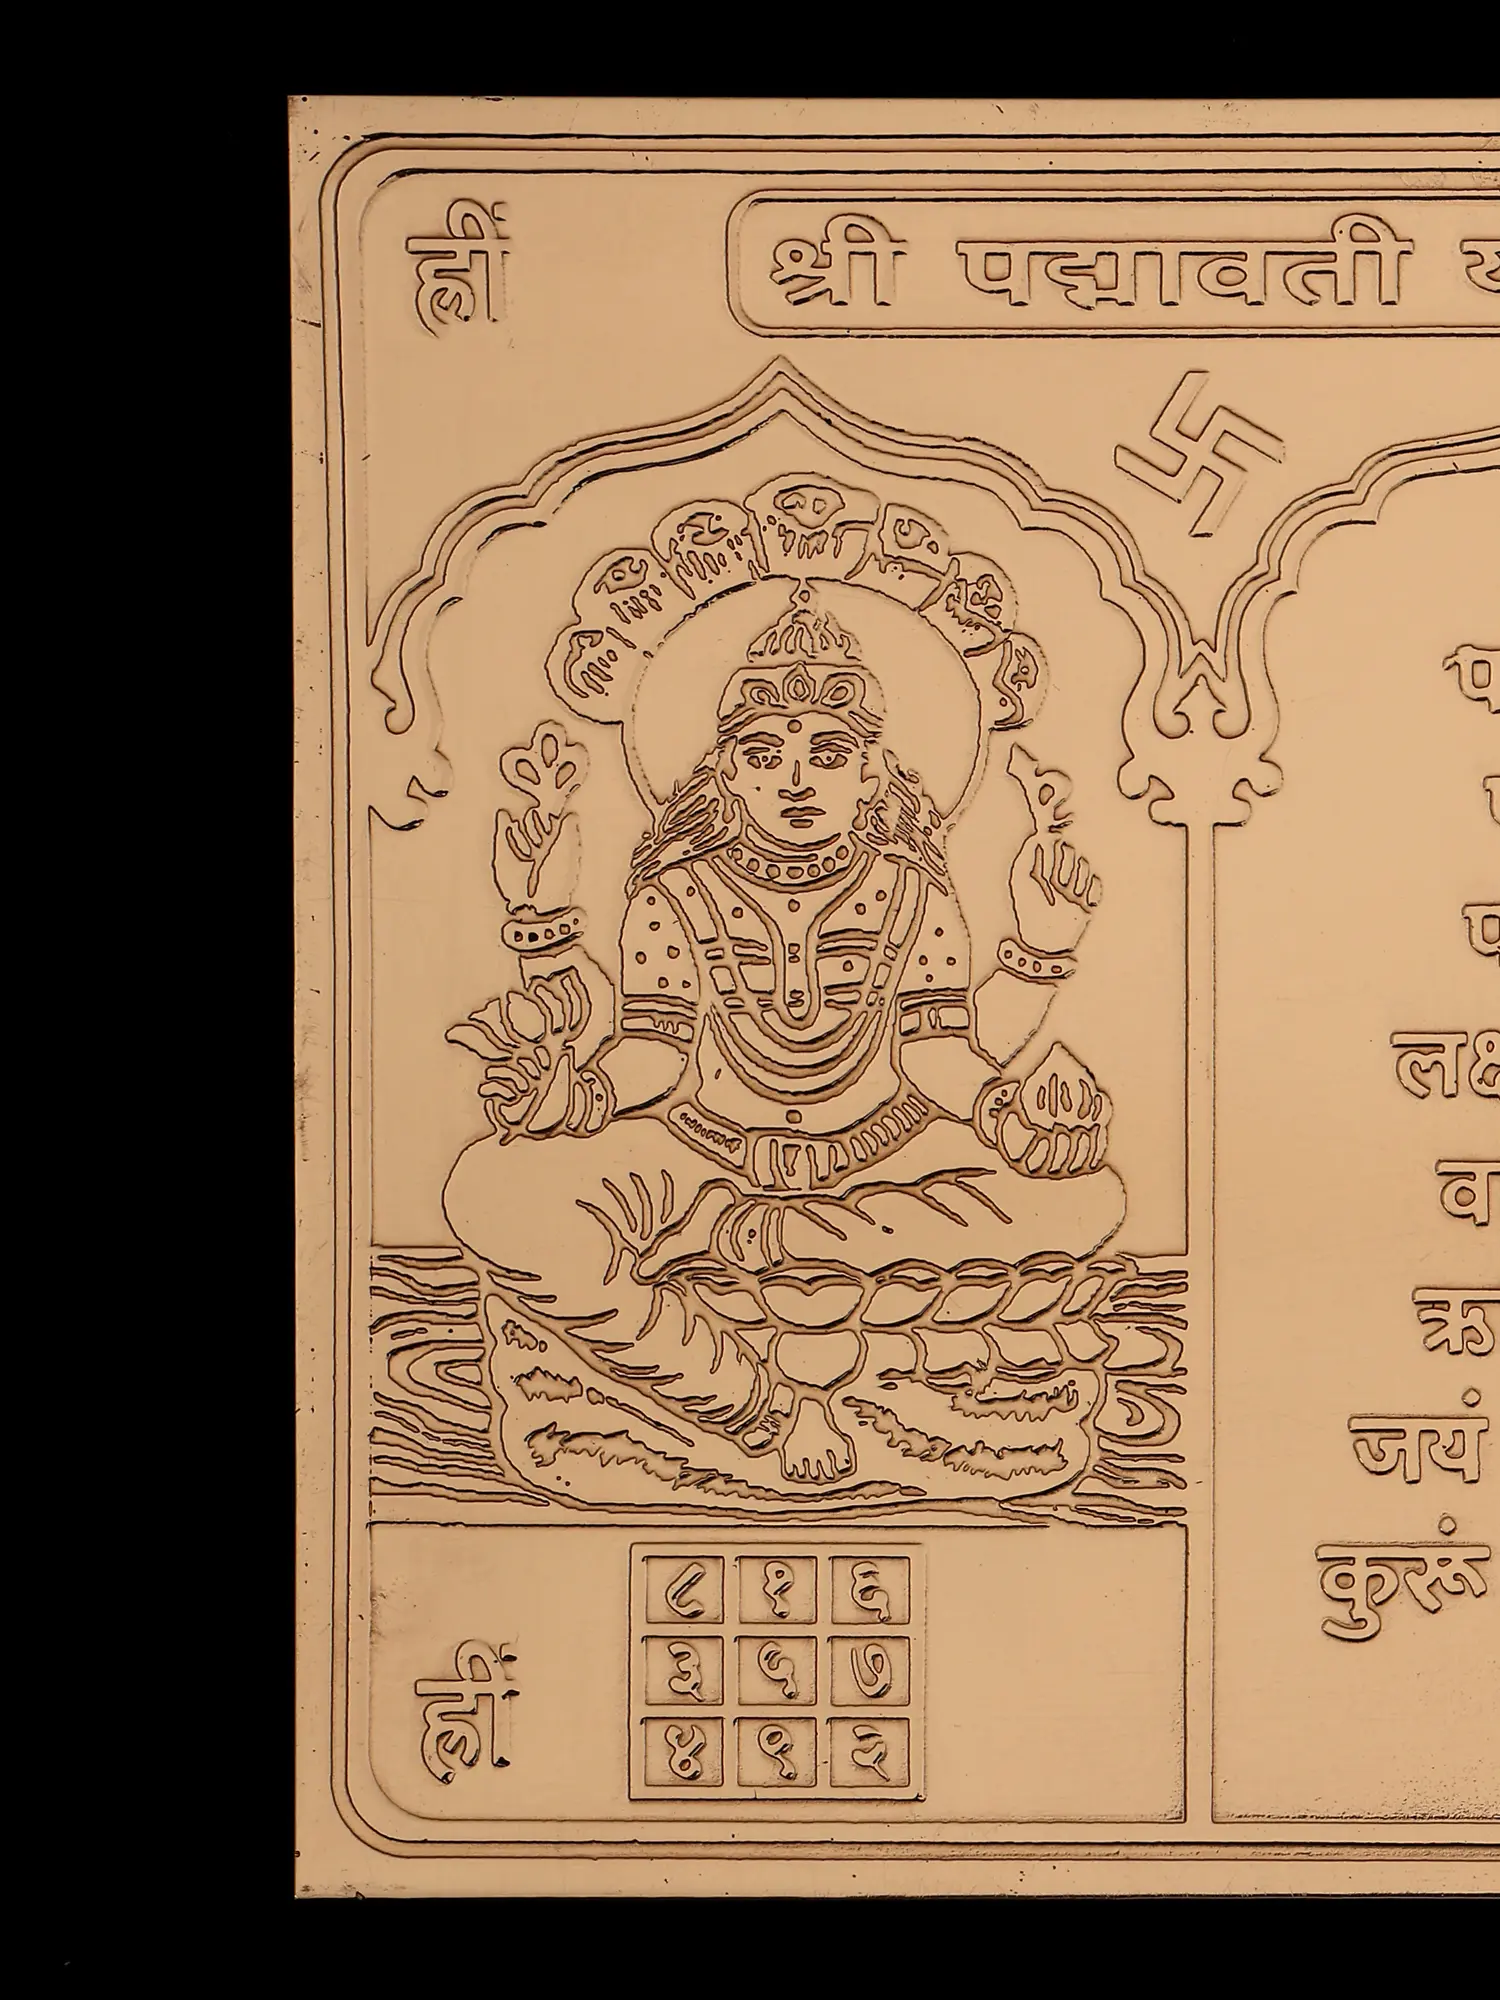 ह्रीं
श्री पद्मावती
प
प
लक्ष
व
ऋ
जयं
कुरूं
८ १ ६
३ ५ ७
४ ९ २
ह्रीं